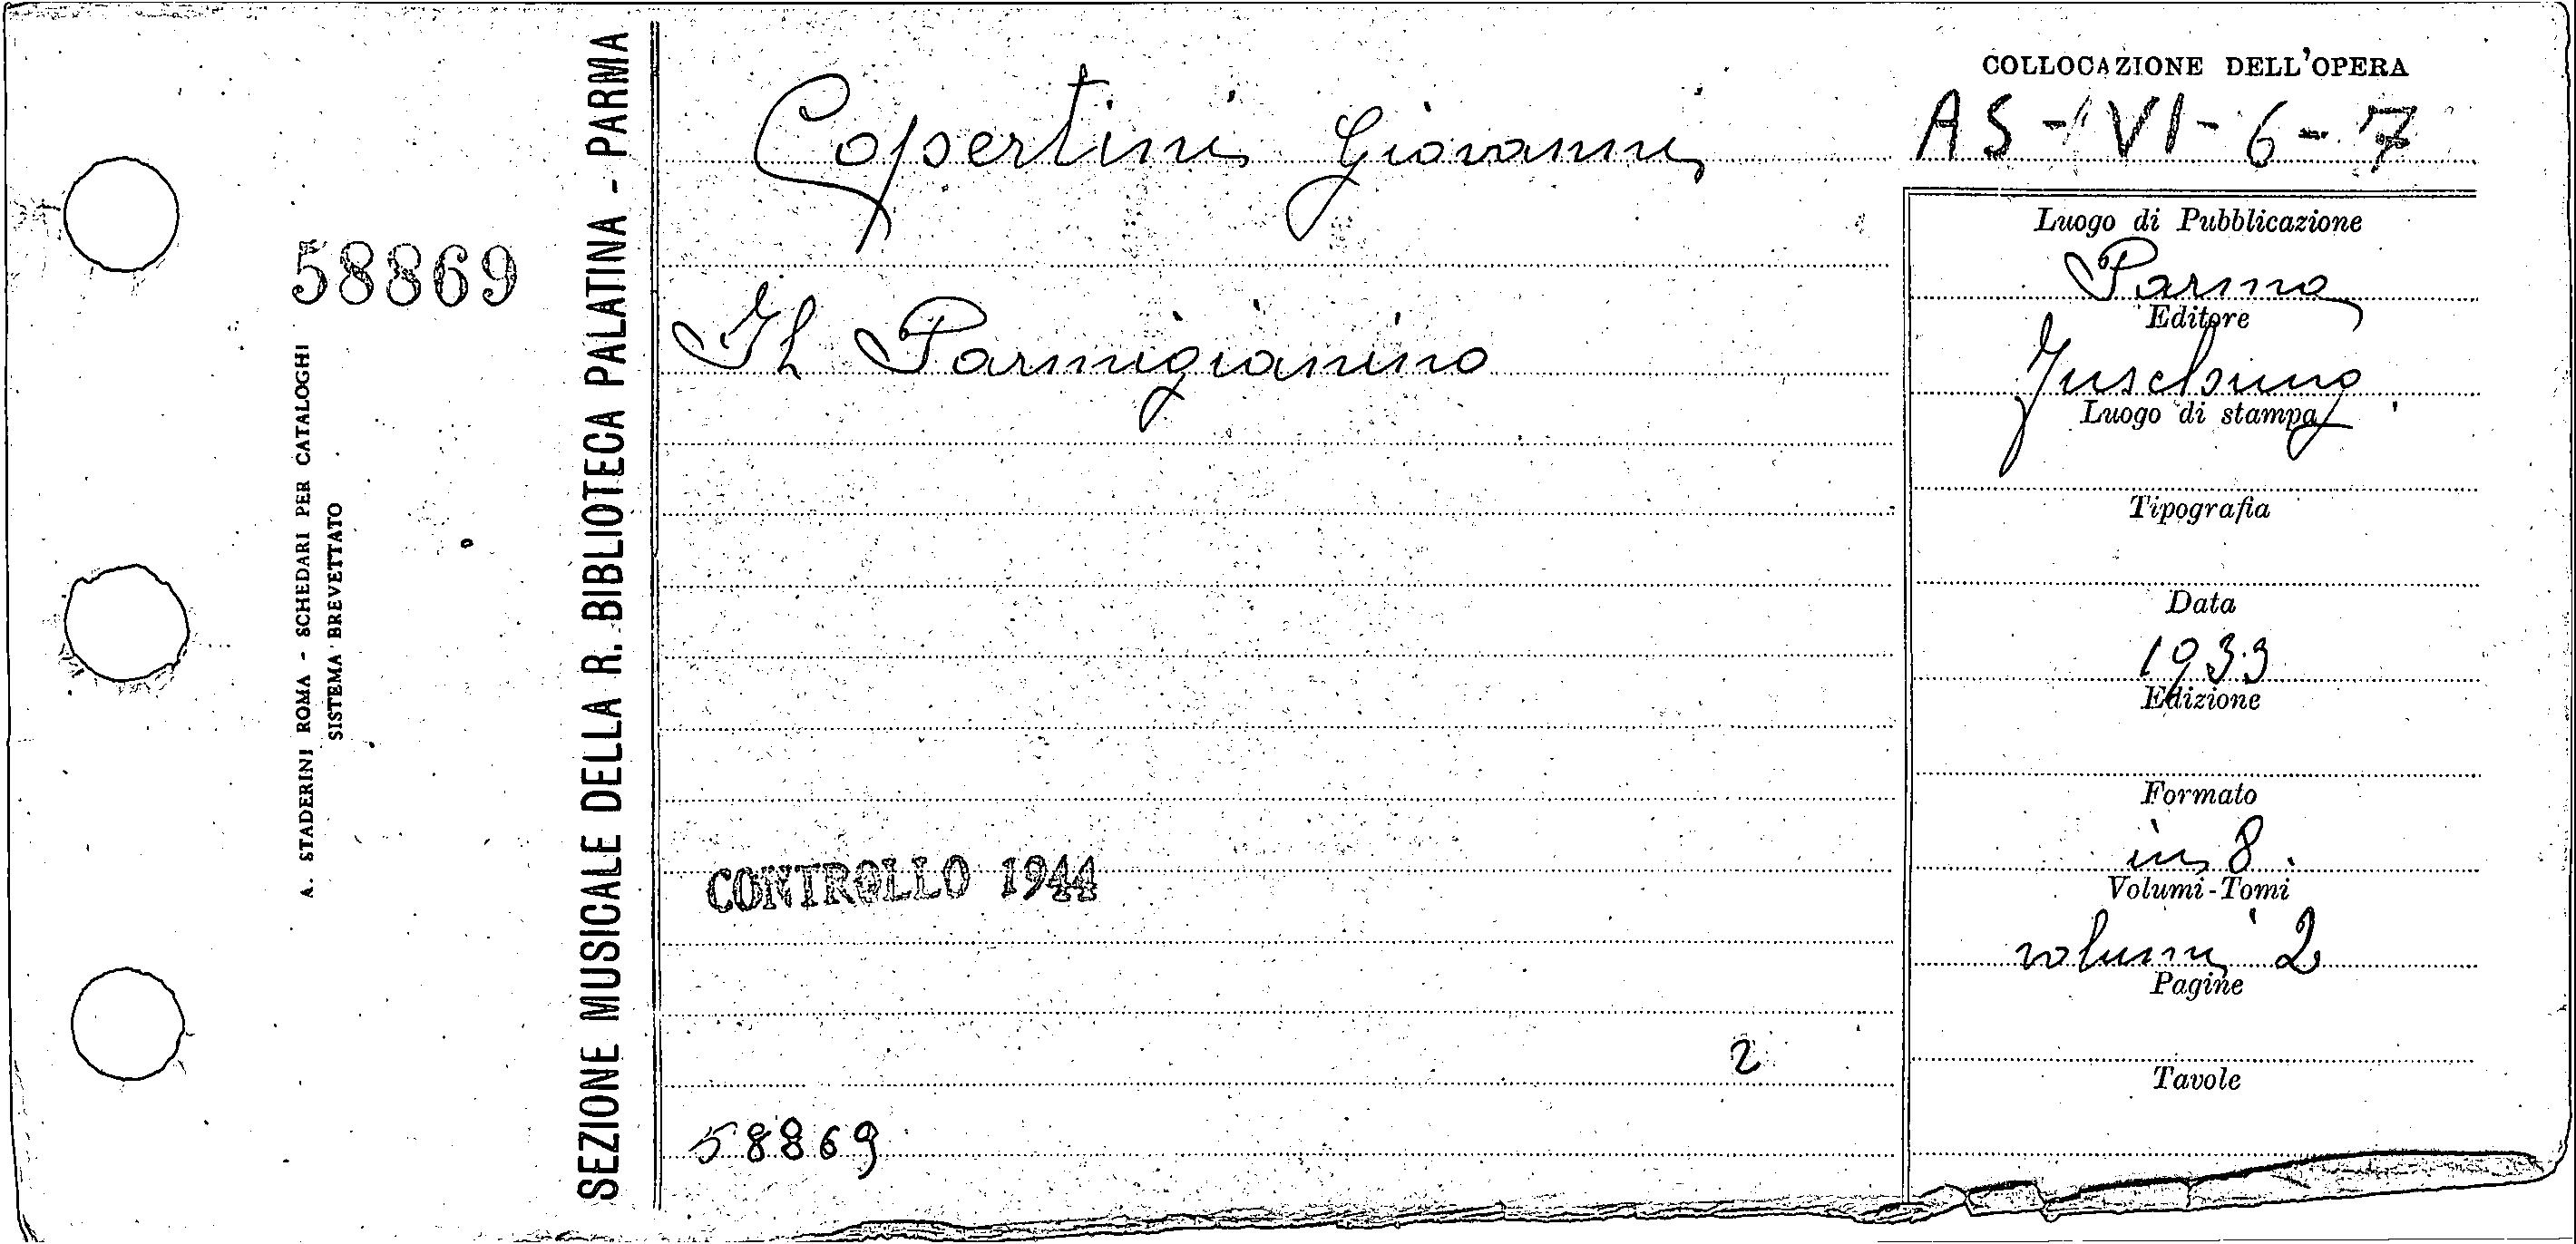 COLLOCAZIONE DELL'OPERA
AS - VI - 6 - 7
Copertini Giovanni
Il Parmigianino
Luogo di Pubblicazione
Parma
Editore
Fuschino
Luogo di stampa
Tipografia
Data
1933
Edizione
Formato
in 8.
Volumi-Tomi
volumi 2
Pagine
Tavole
CONTROLLO 1944
2
58869
58869
A. STADERINI ROMA - SCHEDARI PER CATALOGHI
SISTEMA BREVETTATO
SEZIONE MUSICALE DELLA R. BIBLIOTECA PALATINA - PARMA